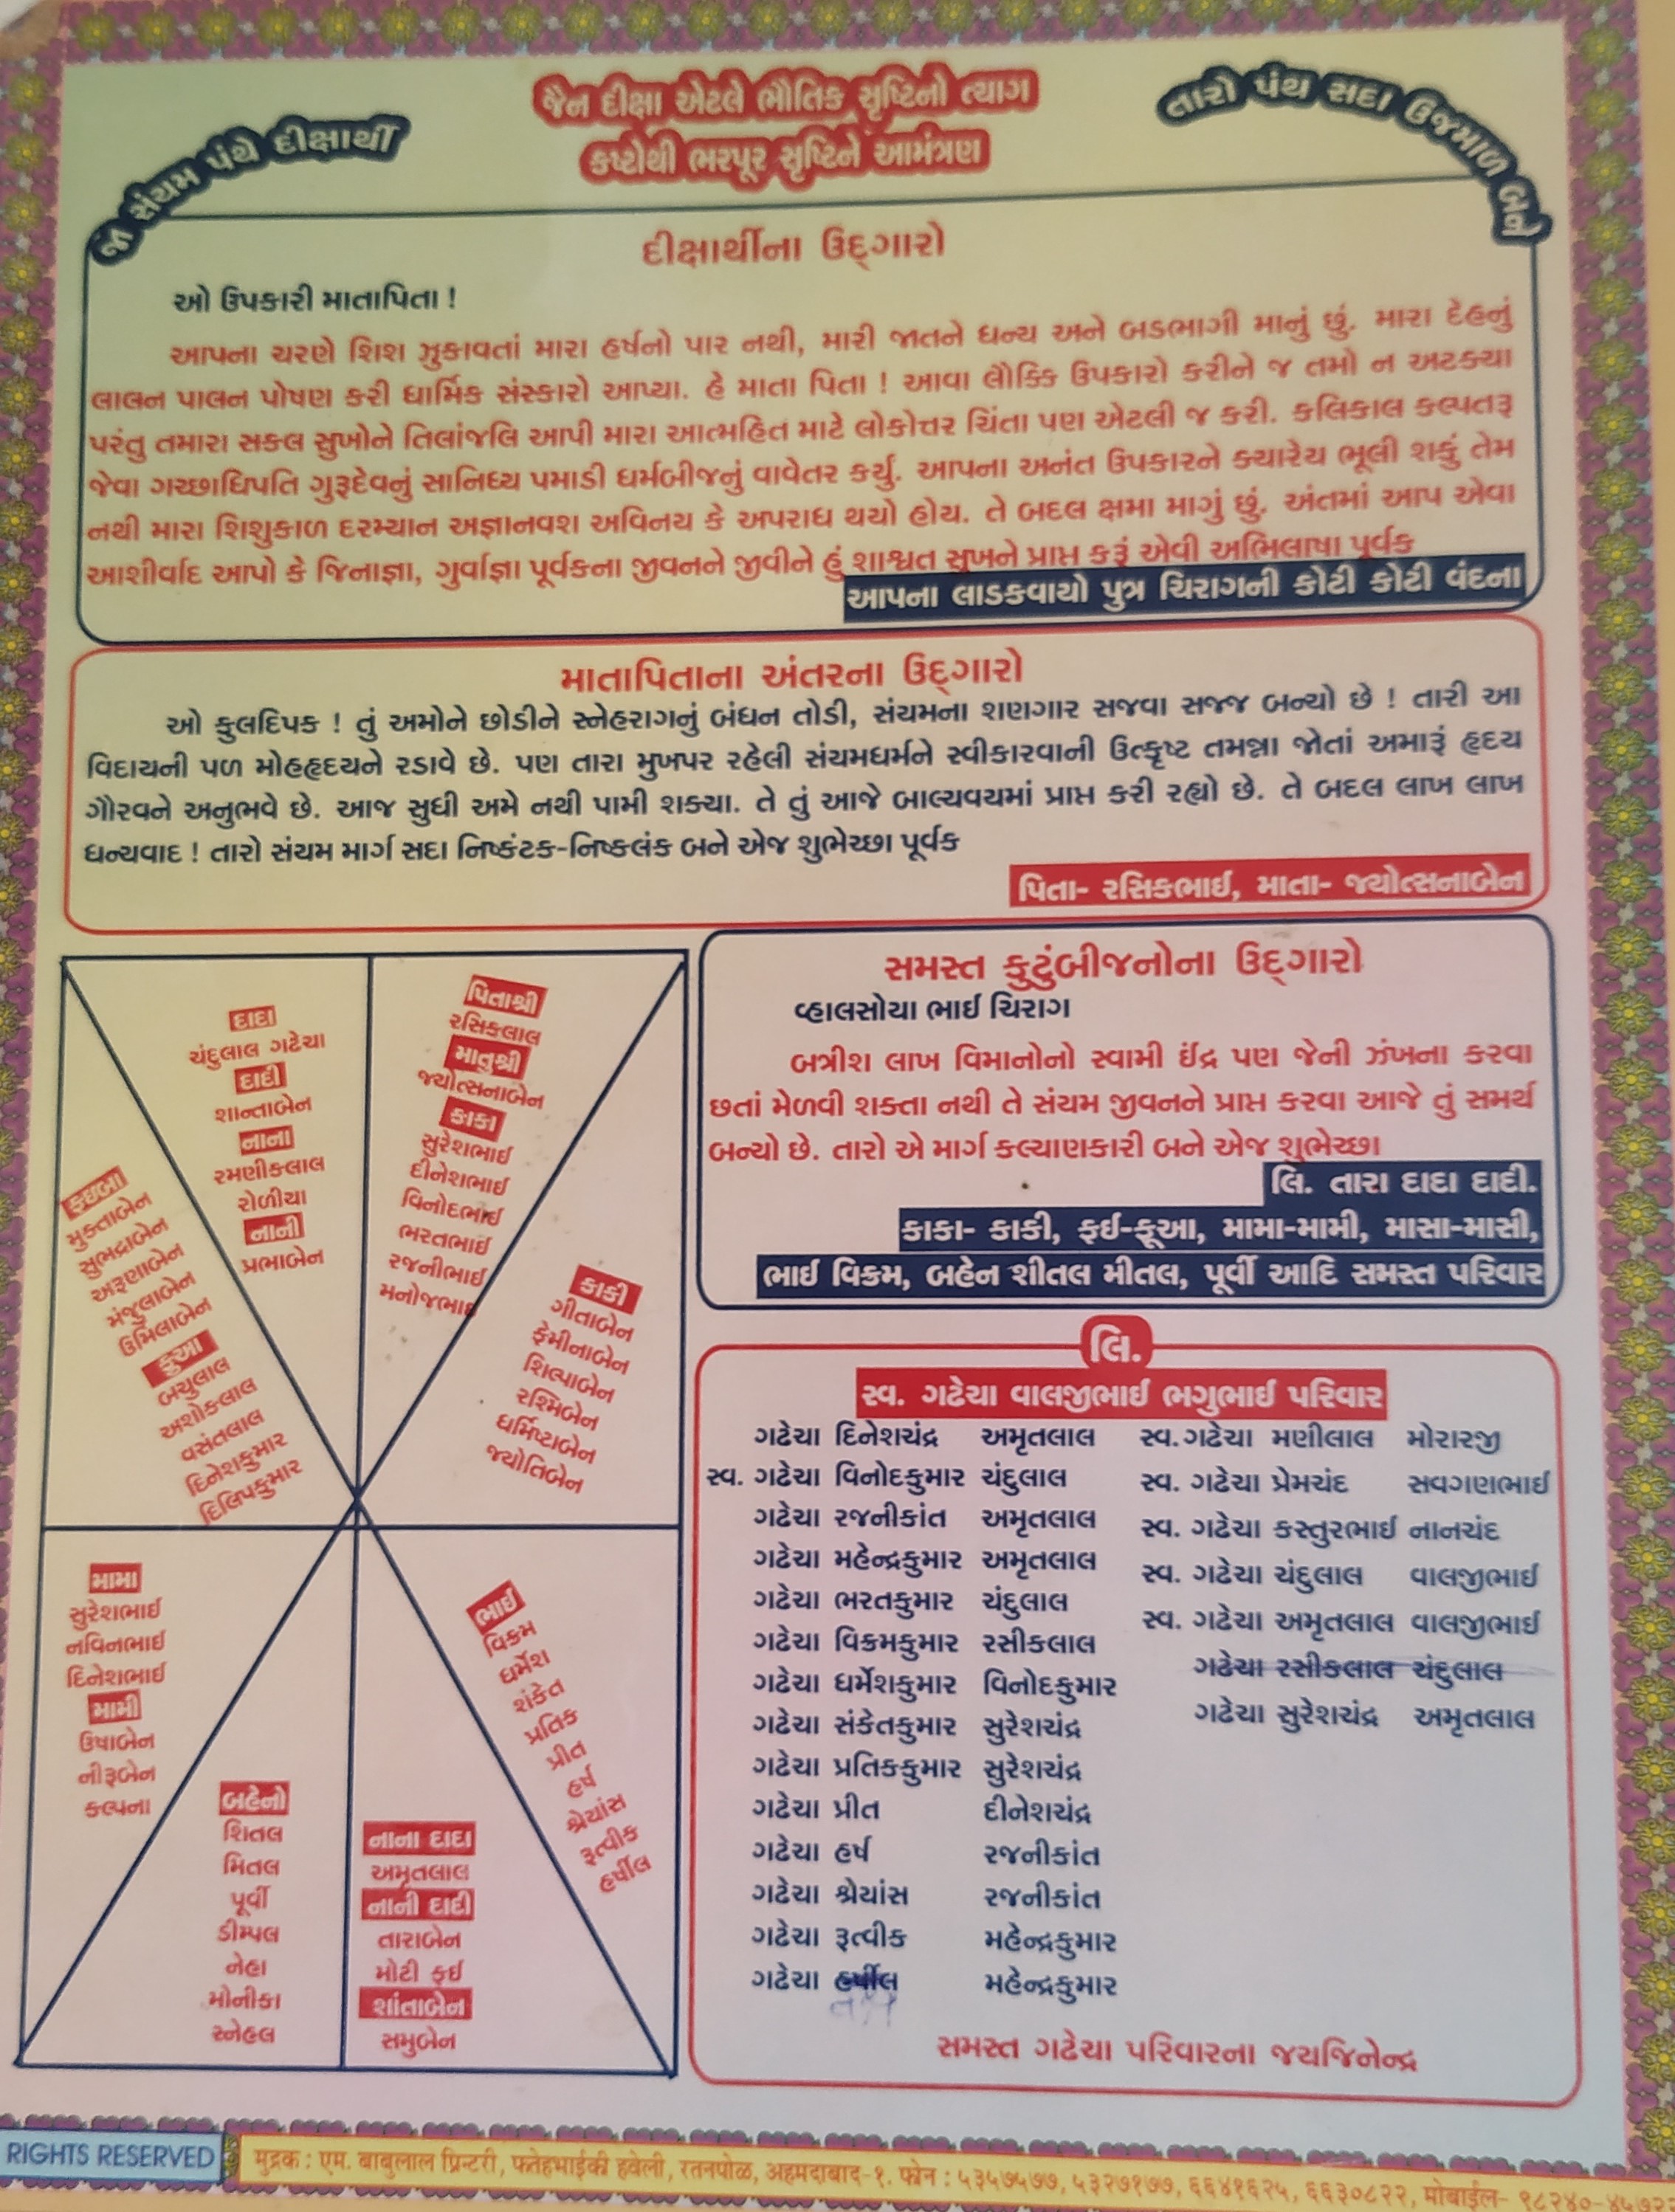 જા સંયમ પંથે દીક્ષાર્થી
જૈન દીક્ષા એટલે ભૌતિક સૃષ્ટિનો ત્યાગ
કષ્ટોથી ભરપૂર સૃષ્ટિને આમંત્રણ
તારો પંથ સદા ઉજમાળ બને
દીક્ષાર્થીના ઉદ્ગારો
ઓ ઉપકારી માતાપિતા !
આપના ચરણે શિશ ઝુકાવતાં મારા હર્ષનો પાર નથી, મારી જાતને ધન્ય અને બડભાગી માનું છું. મારા દેહનું
લાલન પાલન પોષણ કરી ધાર્મિક સંસ્કારો આપ્યા. હે માતા પિતા ! આવા લૌક્કિ ઉપકારો કરીને જ તમો ન અટક્યા
પરંતુ તમારા સકલ સુખોને તિલાંજલિ આપી મારા આત્મહિત માટે લોકોત્તર ચિંતા પણ એટલી જ કરી. કલિકાલ કલ્પતરૂ
જેવા ગચ્છાધિપતિ ગુરૂદેવનું સાનિધ્ય પમાડી ધર્મબીજનું વાવેતર કર્યું. આપના અનંત ઉપકારને ક્યારેય ભૂલી શકું તેમ
નથી મારા શિશુકાળ દરમ્યાન અજ્ઞાનવશ અવિનય કે અપરાધ થયો હોય. તે બદલ ક્ષમા માગું છું. અંતમાં આપ એવા
આશીર્વાદ આપો કે જિનાજ્ઞા, ગુર્વાજ્ઞા પૂર્વકના જીવનને જીવીને હું શાશ્વત સુખને પ્રાપ્ત કરૂં એવી અભિલાષા પૂર્વક
આપના લાડકવાયો પુત્ર ચિરાગની કોટી કોટી વંદના
માતાપિતાના અંતરના ઉદ્ગારો
ઓ કુલદિપક ! તું અમોને છોડીને સ્નેહરાગનું બંધન તોડી, સંયમના શણગાર સજવા સજ્જ બન્યો છે ! તારી આ
વિદાયની પળ મોહહૃદયને રડાવે છે. પણ તારા મુખપર રહેલી સંયમધર્મને સ્વીકારવાની ઉત્કૃષ્ટ તમન્ના જોતાં અમારૂં હૃદય
ગૌરવને અનુભવે છે. આજ સુધી અમે નથી પામી શક્યા. તે તું આજે બાલ્યવયમાં પ્રાપ્ત કરી રહ્યો છે. તે બદલ લાખ લાખ
ધન્યવાદ ! તારો સંયમ માર્ગ સદા નિષ્કંટક-નિષ્કલંક બને એજ શુભેચ્છા પૂર્વક
પિતા- રસિકભાઈ, માતા- જ્યોત્સનાબેન
દાદા
ચંદુલાલ ગઢેચા
દાદી
શાન્તાબેન
નાના
રમણીકલાલ
રોળીયા
નાની
પ્રભાબેન
પિતાશ્રી
રસિકલાલ
માતુશ્રી
જ્યોત્સનાબેન
કાકા
સુરેશભાઈ
દીનેશભાઈ
વિનોદભાઈ
ભરતભાઈ
રજનીભાઈ
મનોજભાઈ
ફઈબા
મુક્તાબેન
સુભદ્રાબેન
અરૂણાબેન
મંજુલાબેન
ઉર્મિલાબેન
ફુઆ
બચુલાલ
અશોકલાલ
વસંતલાલ
દિનેશકુમાર
દિલિપકુમાર
કાકી
ગીતાબેન
ફેમીનાબેન
શિલ્પાબેન
રશ્મિબેન
ધર્મિષ્ટાબેન
જ્યોતિબેન
મામા
સુરેશભાઈ
નવિનભાઈ
દિનેશભાઈ
મામી
ઉષાબેન
નીરૂબેન
કલ્પના
બહેનો
શિતલ
મિતલ
પૂર્વી
ડીમ્પલ
નેહા
મોનીકા
સ્નેહલ
નાના દાદા
અમૃતલાલ
નાની દાદી
તારાબેન
મોટી ફઈ
શાંતાબેન
સમુબેન
ભાઈ
વિક્રમ
ધર્મેશ
શંકેત
પ્રતિક
પ્રીત
હર્ષ
શ્રેયાંસ
રૂત્વીક
હર્ષીલ
સમસ્ત કુટુંબીજનોના ઉદ્ગારો
વ્હાલસોયા ભાઈ ચિરાગ
બત્રીશ લાખ વિમાનોનો સ્વામી ઈંદ્ર પણ જેની ઝંખના કરવા
છતાં મેળવી શક્તા નથી તે સંયમ જીવનને પ્રાપ્ત કરવા આજે તું સમર્થ
બન્યો છે. તારો એ માર્ગ કલ્યાણકારી બને એજ શુભેચ્છા
લિ. તારા દાદા દાદી.
કાકા- કાકી, ફઈ-ફૂઆ, મામા-મામી, માસા-માસી,
ભાઈ વિક્રમ, બહેન શીતલ મીતલ, પૂર્વી આદિ સમસ્ત પરિવાર
લિ.
સ્વ. ગઢેચા વાલજીભાઈ ભગુભાઈ પરિવાર
ગઢેચા દિનેશચંદ્ર અમૃતલાલ
સ્વ. ગઢેચા વિનોદકુમાર ચંદુલાલ
ગઢેચા રજનીકાંત અમૃતલાલ
ગઢેચા મહેન્દ્રકુમાર અમૃતલાલ
ગઢેચા ભરતકુમાર ચંદુલાલ
ગઢેચા વિક્રમકુમાર રસીકલાલ
ગઢેચા ધર્મેશકુમાર વિનોદકુમાર
ગઢેચા સંકેતકુમાર સુરેશચંદ્ર
ગઢેચા પ્રતિકકુમાર સુરેશચંદ્ર
ગઢેચા પ્રીત દીનેશચંદ્ર
ગઢેચા હર્ષ રજનીકાંત
ગઢેચા શ્રેયાંસ રજનીકાંત
ગઢેચા રૂત્વીક મહેન્દ્રકુમાર
ગઢેચા હર્ષીલ મહેન્દ્રકુમાર
સ્વ.ગઢેચા મણીલાલ મોરારજી
સ્વ. ગઢેચા પ્રેમચંદ સવગણભાઈ
સ્વ. ગઢેચા કસ્તુરભાઈ નાનચંદ
સ્વ. ગઢેચા ચંદુલાલ વાલજીભાઈ
સ્વ. ગઢેચા અમૃતલાલ વાલજીભાઈ
ગઢેચા રસીકલાલ ચંદુલાલ
ગઢેચા સુરેશચંદ્ર અમૃતલાલ
સમસ્ત ગઢેચા પરિવારના જયજિનેન્દ્ર
RIGHTS RESERVED
मुद्रक : एम. बाबुलाल प्रिन्टरी, फतेहभाईकी हवेली, रतनपोळ, अहमदाबाद-१. फोन : ५३५७५७७, ५३२७१७७, ६६४१६२५, ६६३०८२२, मोबाईल- ९८२४०